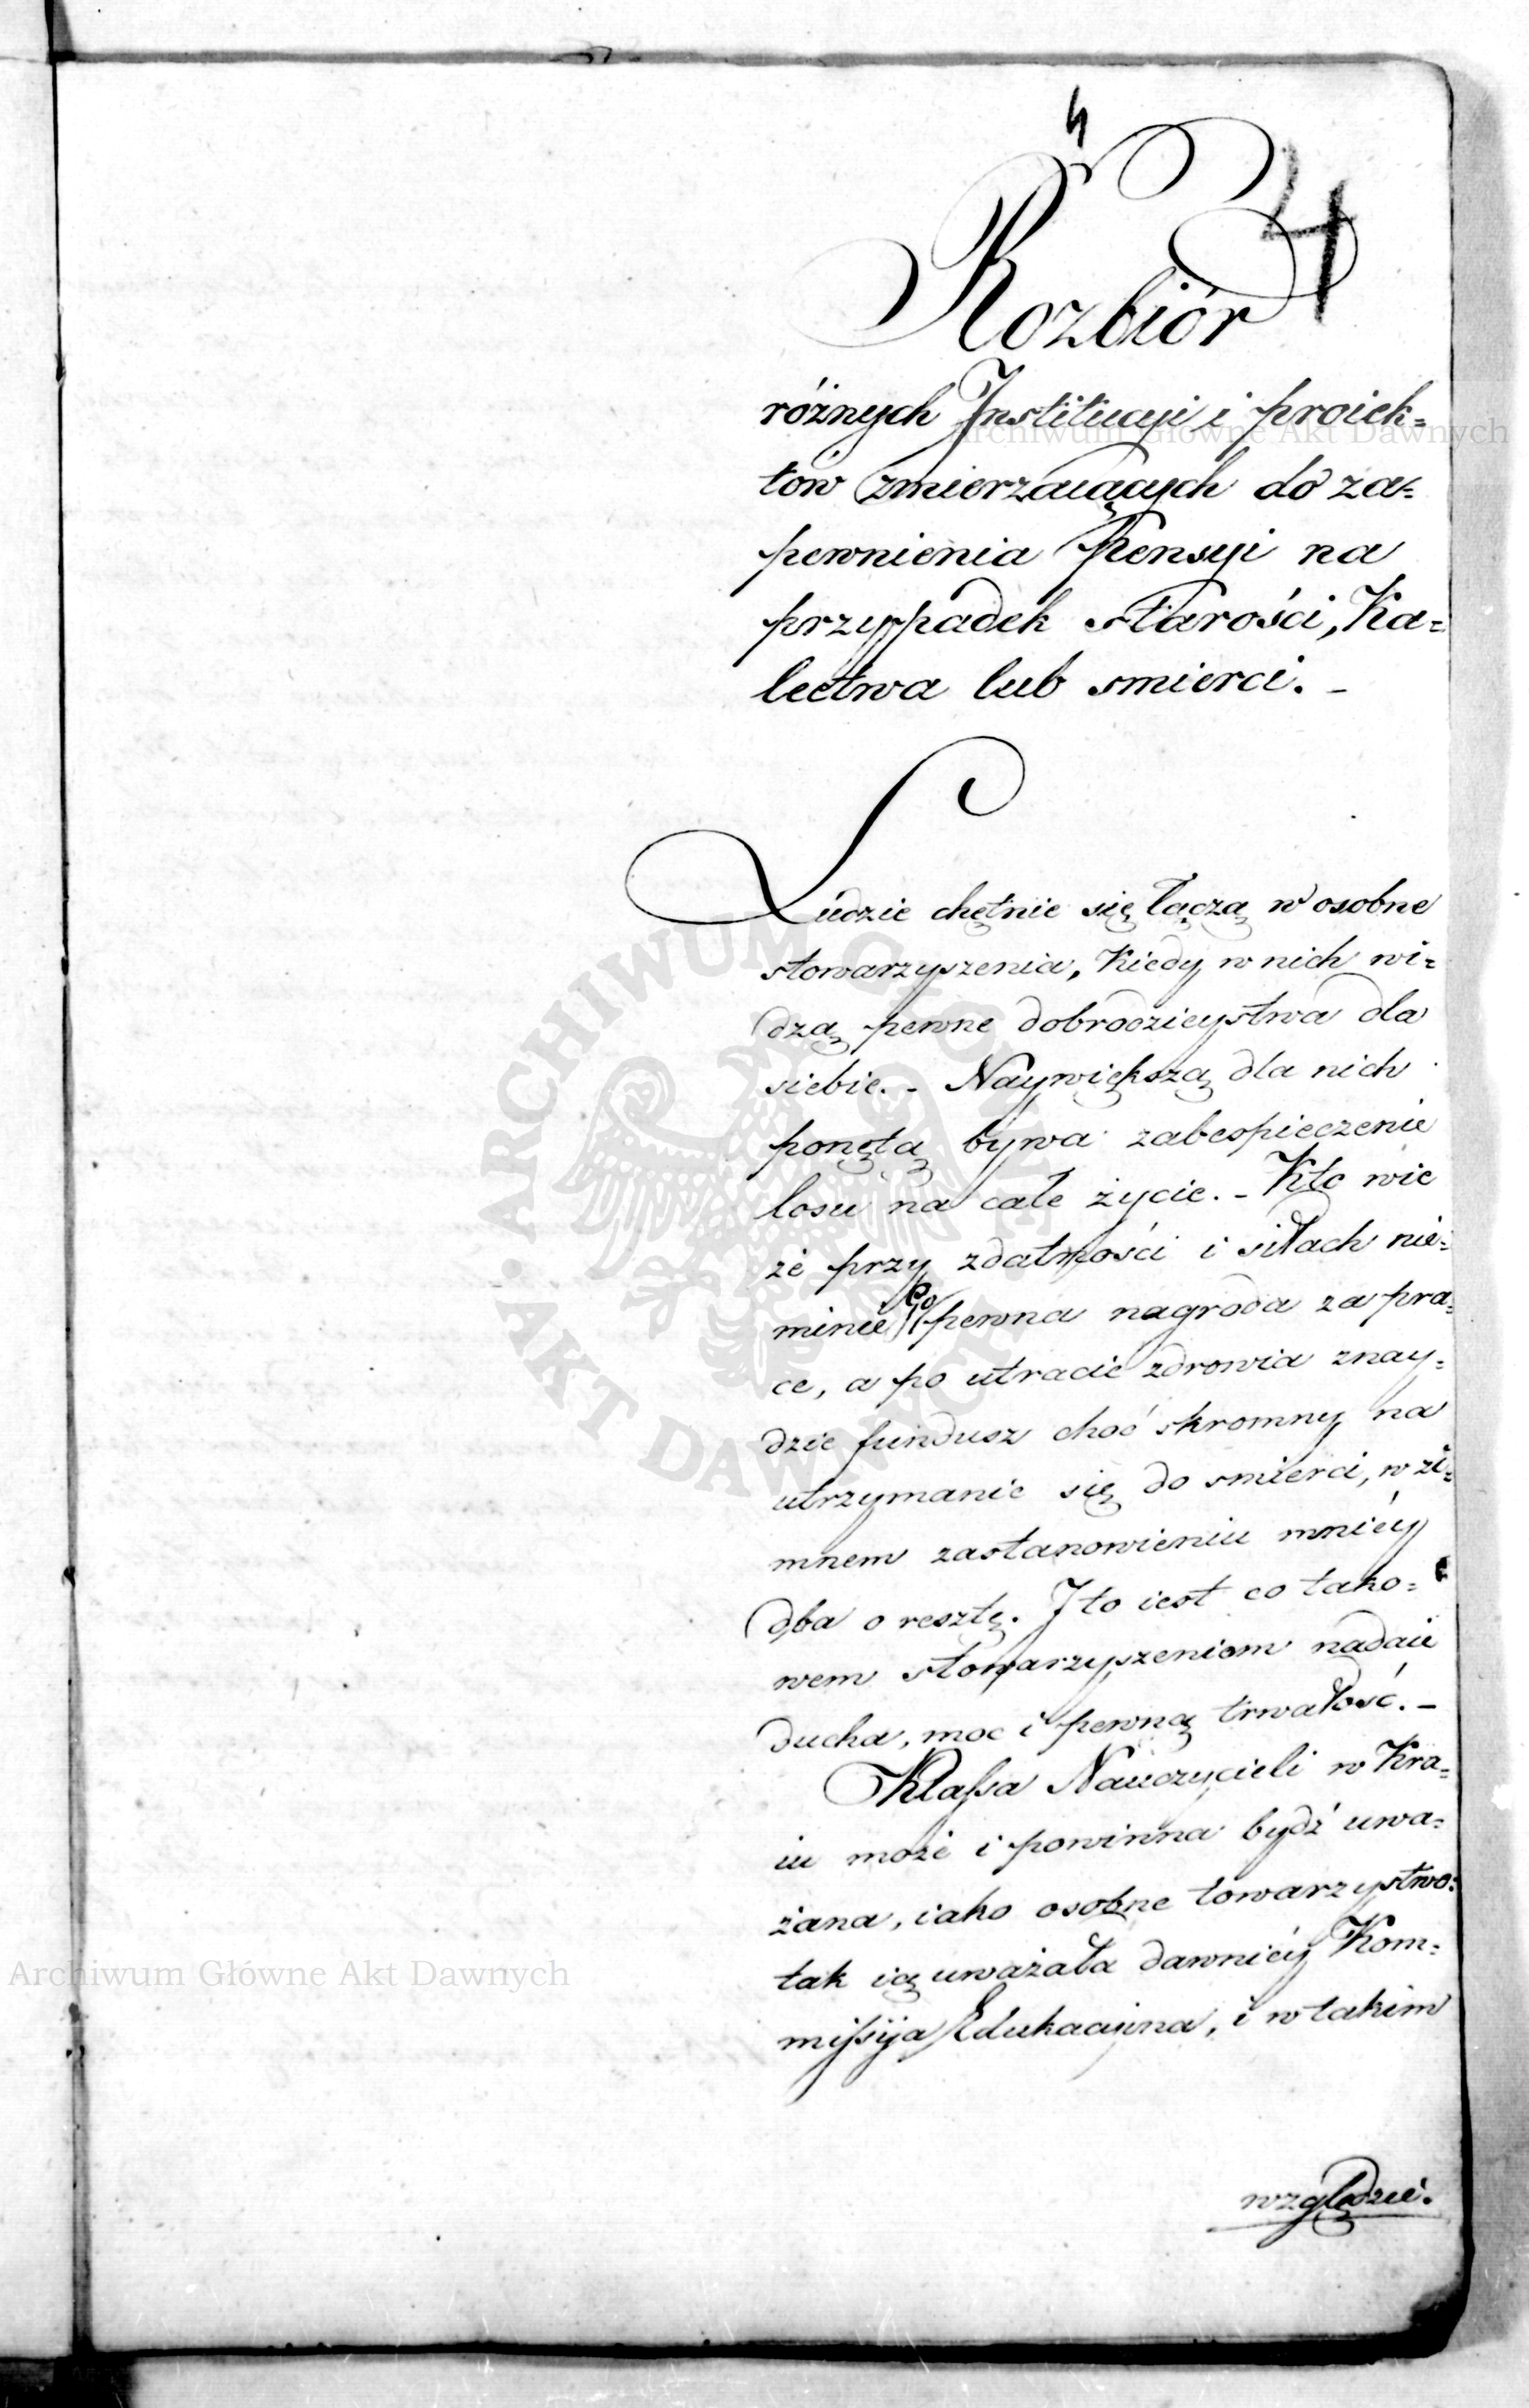 4
4
Rozbiór
różnych Institucyi i proiek=
tów zmierzaiących do za=
pewnienia Pensyi na
przypadek starości, Ka=
lectwa lub smierci. -
Ludzie chętnie się łączą w osobne
stowarzyszenia, Kiedy w nich wi=
dzą pewne dobrodzieystwa dla
siebie. - Naywiększą dla nich
ponętą bywa zabespieczenie
losu na całe życie. - Kto wie
że przy zdatności i siłach nie=
minie go pewna nagroda za pra=
ce, a po utracie zdrowia znay=
dzie fundusz choć skromny na
utrzymanie się do smierci, w zi=
mnem zastanowieniu mniéy
dba o resztę. I to iest co tako=
wem stowarzyszeniom nadaie
ducha, moc i pewną trwałość. -
Klassa Nauczycieli w Kra=
iu może i powinna bydź uwa=
żana, iako osobne towarzystwo:
tak ią uważała dawniéy Kom=
missyja Edukacyina, i w takim
względzie.
Archiwum Główne Akt Dawnych
Archiwum Główne Akt Dawnych
ARCHIWUM GŁÓWNE AKT DAWNYCH